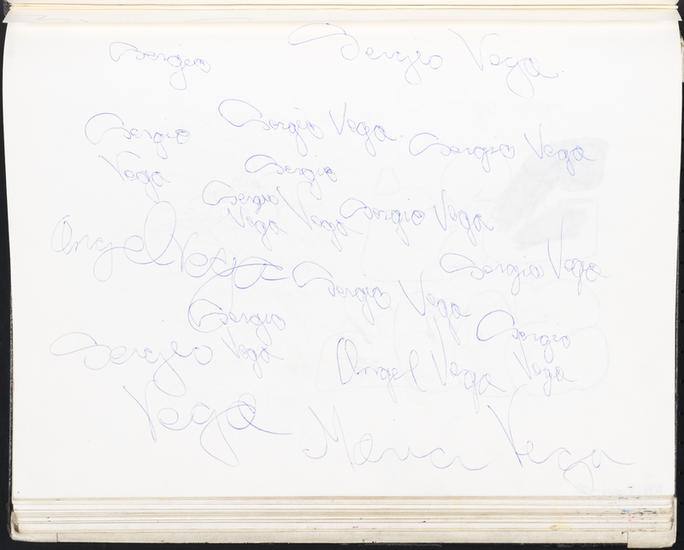 Sergio Sergio Vega
Sergio Sergio Vega Sergio Vega
Vega Sergio
Sergio Vega Sergio Vega
Vega
Angel Vega Sergio Vega
Sergio Vega
Sergio Sergio
Sergio Vega Angel Vega Vega
Vega Vega